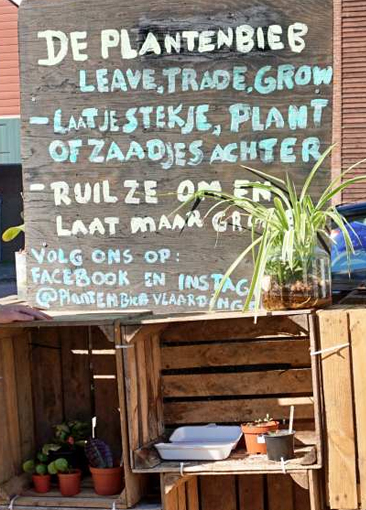 DE PLANTENBIEB
LEAVE, TRADE, GROW
- LAAT JE STEKJE, PLANT
OF ZAADJES ACHTER
- RUIL ZE OM EN
LAAT MAAR
VOLG ONS OP:
FACEBOOK EN INSTAG
@PLANTENBIEB VLAARDING